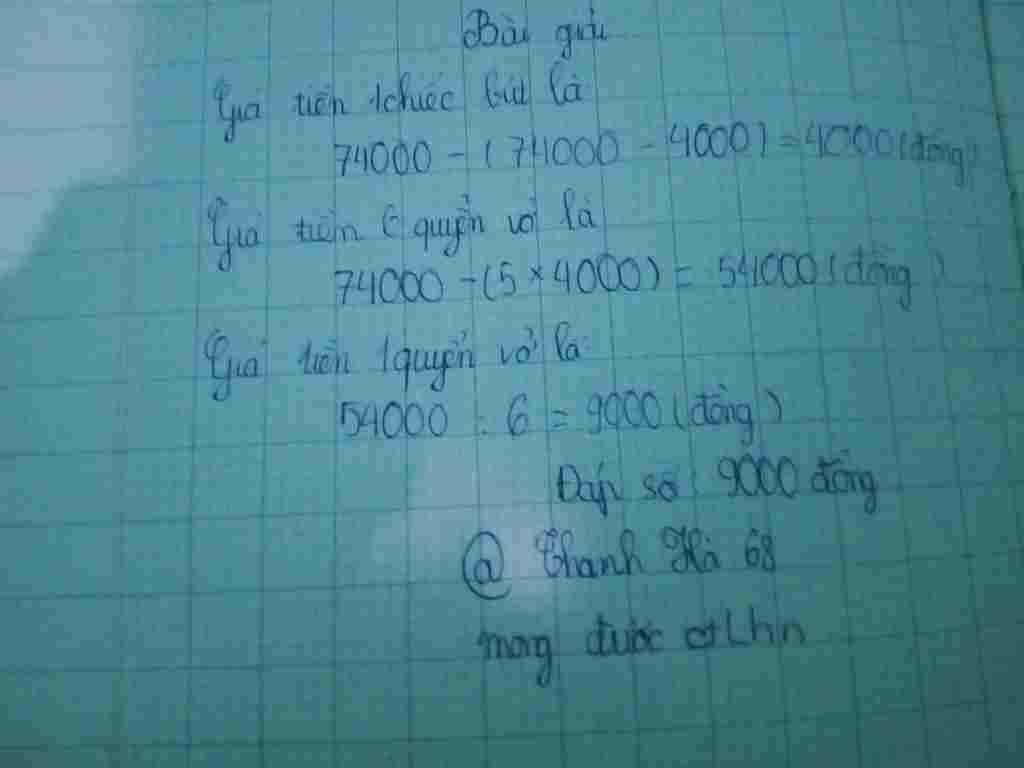 Bài giải
Giá tiền 1 chiếc bút là
74000 - (74000 - 4000) = 4000 (đồng)
Giá tiền 6 quyển vở là
74000 - (5 × 4000) = 54000 (đồng)
Giá tiền 1 quyển vở là:
54000 : 6 = 9000 (đồng)
Đáp số : 9000 đồng
@ Thanh Hà 68
mong được ctlhn